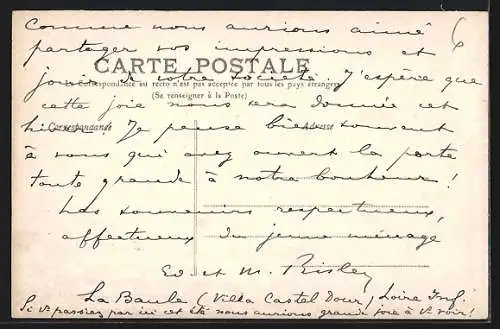 Comme nous aurions aimé
partager vos impressions et
CARTE POSTALE
jouir de votre société. J'espère que
La Correspondance au recto n'est pas acceptée par tous les pays étrangers
(Se renseigner à la Poste)
cette joie nous sera donnée cet
Correspondance
Adresse
hiver. Je pense bien souvent
à vous qui avez ouvert la porte
toute grande à notre bonheur!
Les souvenirs respectueux,
affectueux du jeune ménage
Ed et M. Risley
La Baule (Villa Castel Dour) Loire Inf.
Si vs passiez par ici cet été nous aurions grande joie à vs voir!
6